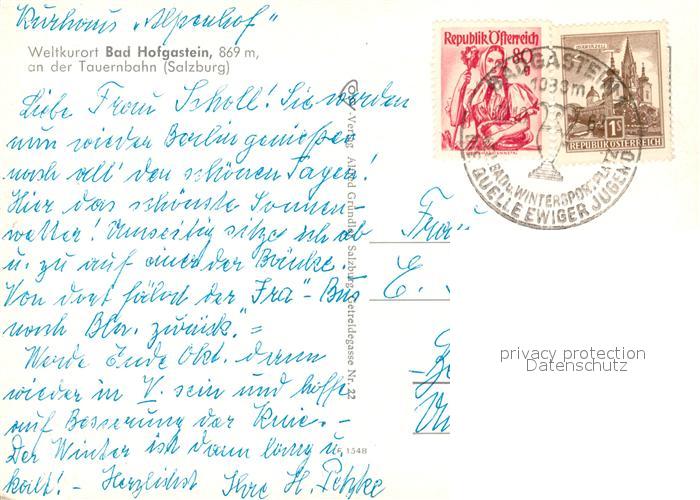 Kurhaus „Alpenhof"
Weltkurort Bad Hofgastein, 869 m,
an der Tauernbahn (Salzburg)
Liebe Frau Scholl! Sie werden
nun wieder Berlin genießen
nach all' den schönen Tagen!
Hier das schönste Sonnen-
wetter! Umseitig sitze ich ab
u. zu auf einer der Bänke.
Von dort fährt der "Fra"-Bus
nach Bln. zurück. =
Werde Ende Okt. dann
wieder in V. sein und hoffe
auf Besserung der Knie. -
Der Winter ist dann lang u.
kalt! - Herzlichst Ihre H. Petzke
Verlag Alfred Gründler, Salzburg, Getreidegasse Nr. 22
1548
Republik Österreich
80
MARIAZELL
1S
REPUBLIK ÖSTERREICH
BADGASTEIN
1083m
BAD u. WINTERSPORTPLATZ
QUELLE EWIGER JUGEND
Frau
E.
privacy protection
Datenschutz